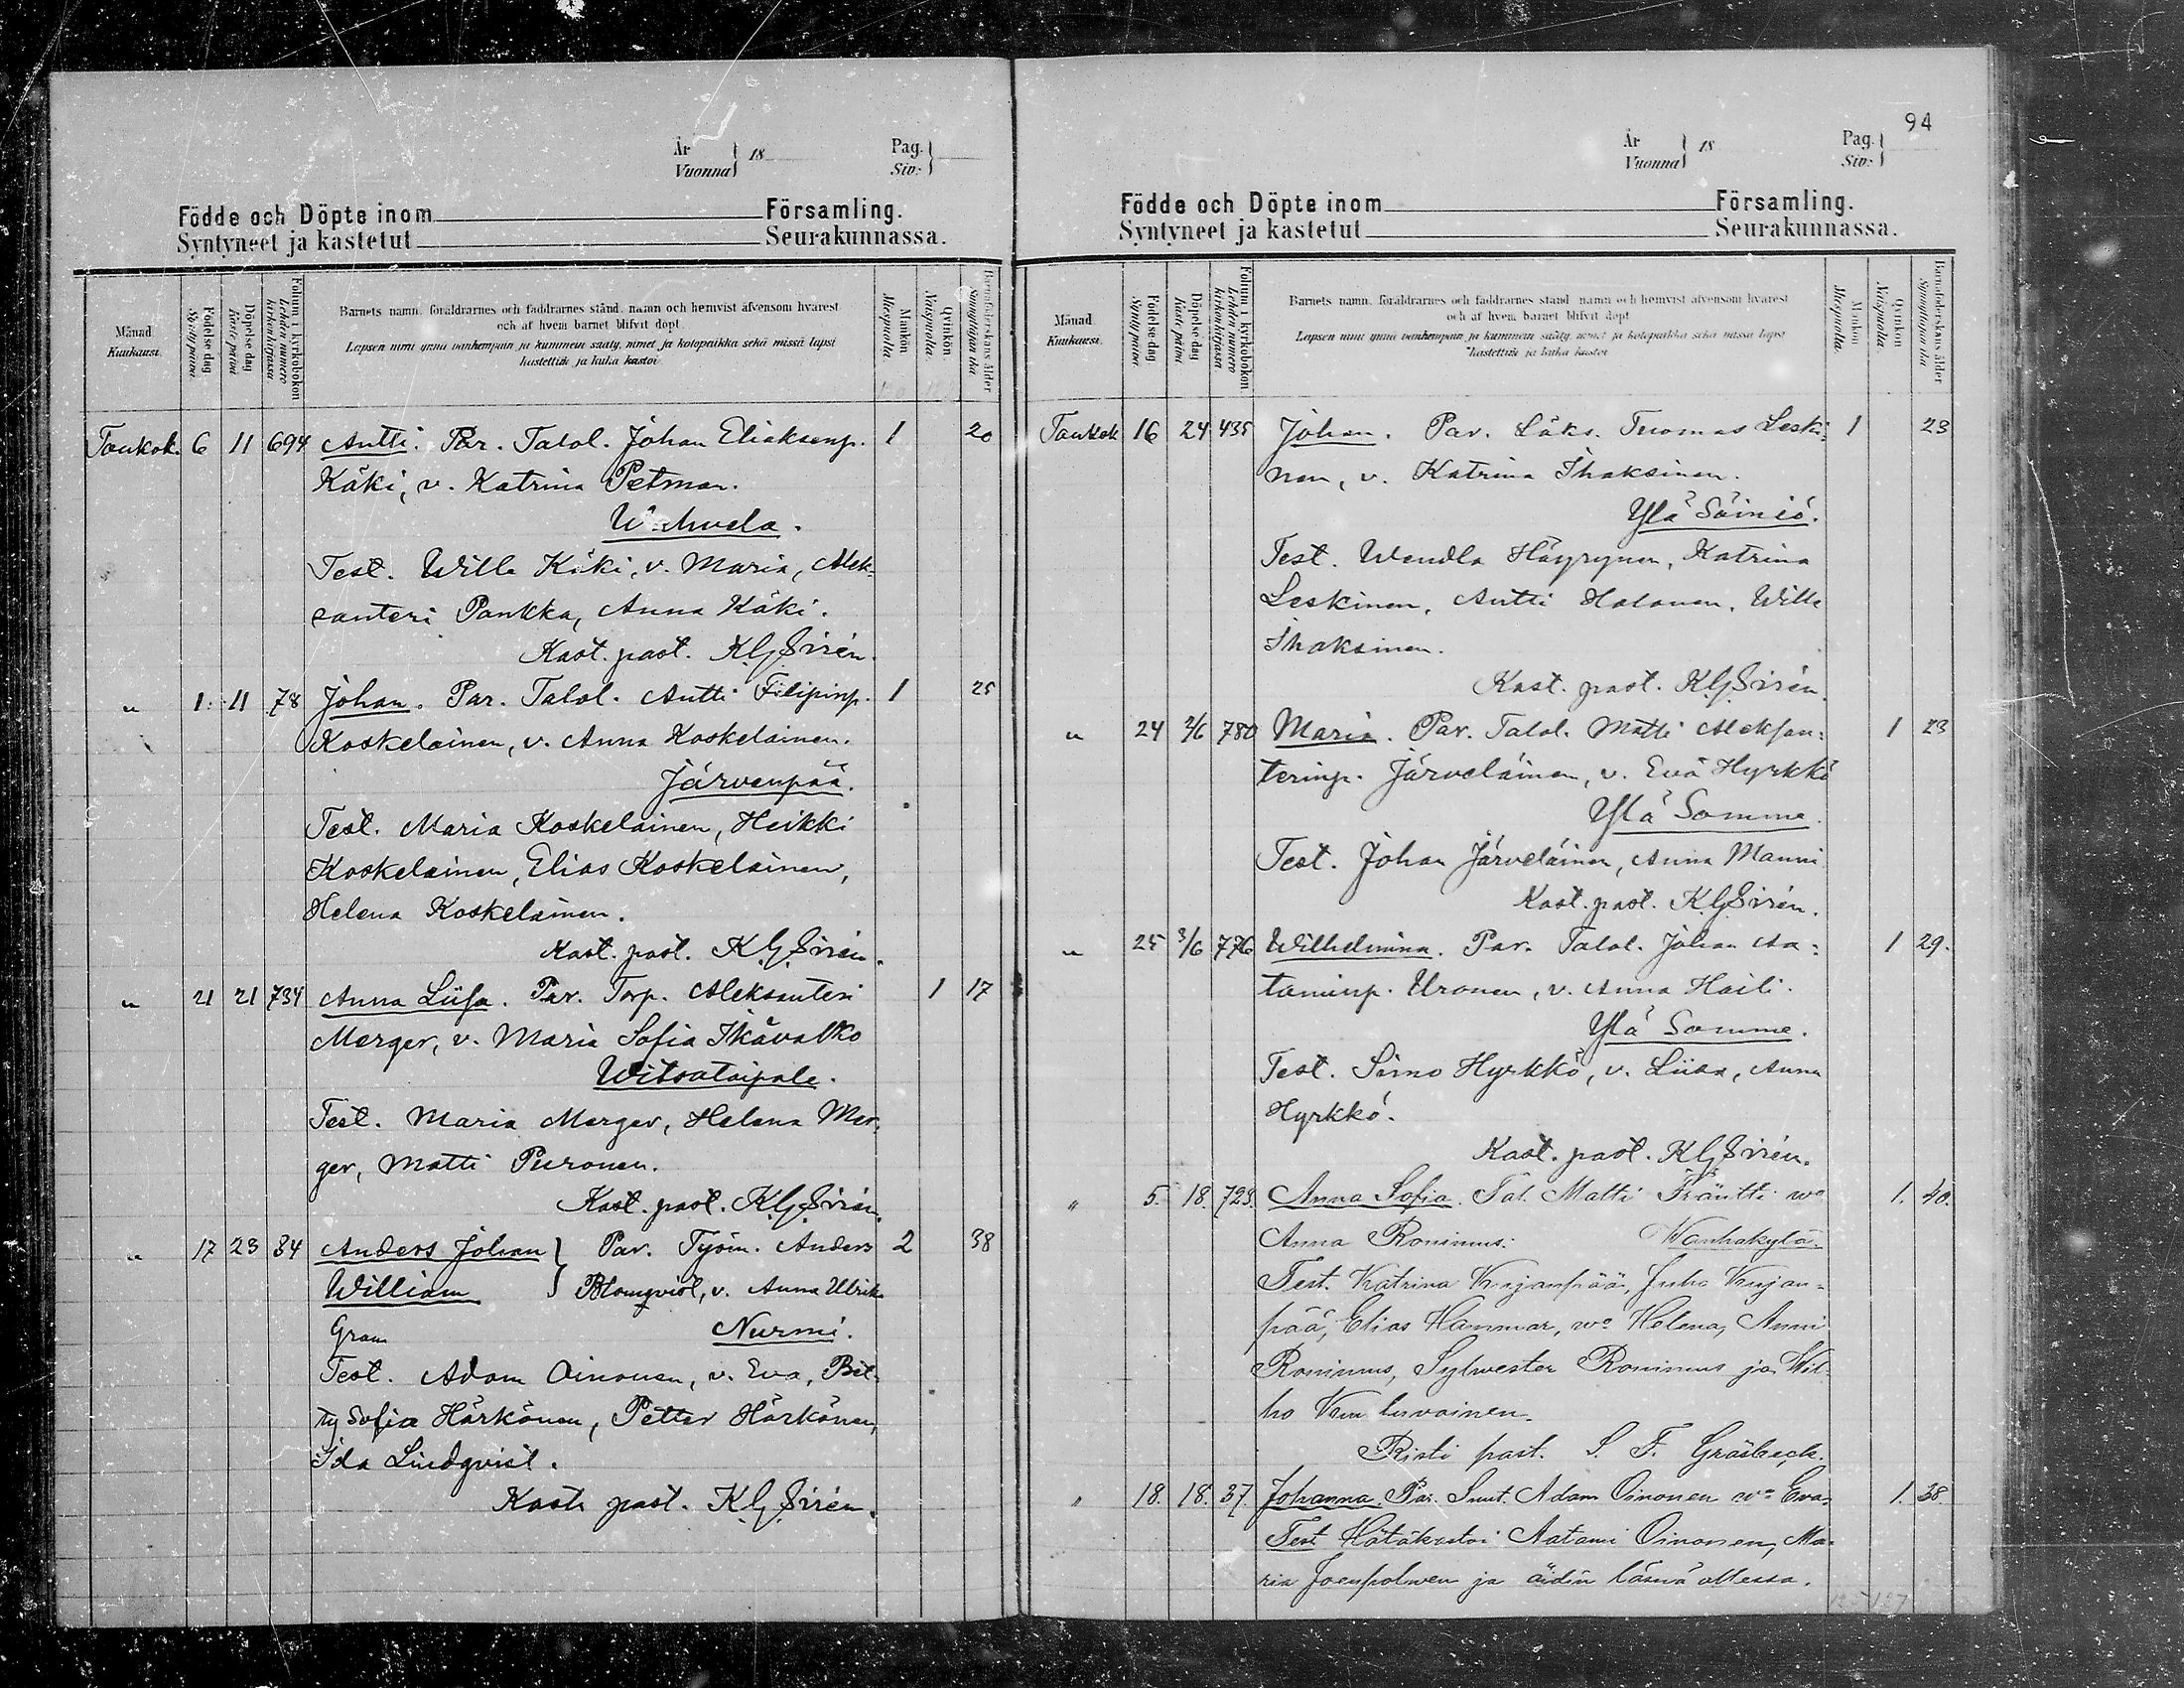 År
Vuonna } 18
Pag.
Siv: }
Födde och Döpte inom Församling.
Syntyneet ja kastetut Seurakunnassa.
Månad
Kuukausi.
Födelse dag
Syntypäivä
Döpelse dag
Kaste päivä
Folium i kyrkoboken
Lehden numero
kirkonkirjassa
Barnets namn, föräldrarnes och faddrarnes stånd, namn och hemvist äfvensom hvarest
och af hvem barnet blifvit döpt.
Lapsen nimi ynnä vanhempain ja kummein sääty, nimet ja kotopaikka sekä missä lapsi
kastettiin ja kuka kastoi
Mankön
Miespuolia
Qvinkön
Naispuolia
Barnaföderskans ålder
Synnyttäjän ikä
Toukok. 6 11 694 Antti. Par. Talol. Johan Eliaksenp. 1 20
Käki, v. Katrina Petman.
Test. Wille Käki, v. Maria, Alek-
santeri Pankka, Anna Käki.
Kast. past. KG Sirén.
" 1. 11 78 Johan. Par. Talol. Antti Filipinp. 1 25
Koskelainen, v. Anna Koskelainen.
Järvenpää.
Test. Maria Koskelainen, Heikki
Koskelainen, Elias Koskelainen,
Helena Koskelainen.
Kast. past. KG Sirén.
" 21 21 734 Anna Liisa. Par. Torp. Aleksanteri 1 17
Merger, v. Maria Sofia Ikävalko
Witsataipale.
Test. Maria Merger, Helena Mer-
ger, Matti Puronen.
Kast. past. KG Sirén.
" 17 23 34 Anders Johan } Par. Työm. Anders 2 38
William } Blomqvist, v. Anna Ulrik
Gram Nurmi.
Test. Adam Oinonen, v. Eva, Bet-
ty Sofia Härkönen, Petter Härkönen,
Ida Lindqvist.
Kasti past. KG Sirén.
94
År
Vuonna } 18
Pag.
Siv: }
Födde och Döpte inom Församling.
Syntyneet ja kastetut Seurakunnassa.
Månad
Kuukausi.
Födelse dag
Syntypäivä
Döpelse dag
Kaste päivä
Folium i kyrkoboken
Lehden numero
kirkonkirjassa
Barnets namn, föräldrarnes och faddrarnes stånd, namn och hemvist äfvensom hvarest
och af hvem barnet blifvit döpt
Lapsen nimi ynnä vanhempain ja kummein sääty, nimet ja kotopaikka sekä missä lapsi
kastettiin ja kuka kastoi
Mankön
Miespuolia.
Qvinkön
Naispuolia.
Barnaföderskans ålder
Synnyttäjän ikä
Toukok 16 24 435 Johan. Par. Läks. Tuomas Leski- 1 23
nen, v. Katrina Ihaksinen.
Ylä Säiniö.
Test. Wendla Häyrynen, Katrina
Leskinen, Antti Halonen, Wille
Ihaksinen.
Kast. past. KG Sirén.
" 24 2/6 780 Maria. Par. Talol. Matti Aleksan- 1 23
terinp. Järveläinen, v. Eva Hyrkkö
Ylä Somme.
Test. Johan Järveläinen, Anna Manni
Kast. past. KG Sirén.
" 25 3/6 776 Wilhelmina. Par. Talol. Johan Aa- 1 29.
taminp. Uronen, v. Anna Haili.
Ylä Somme.
Test. Simo Hyrkkö, v. Liisa, Anna
Hyrkkö.
Kast. past. KG Sirén.
" 5. 18. 723. Anna Sofia. Tal. Matti Fräntti wo 1. 40.
Anna Ronimus. Wanhakylä.
Test. Katrina Kujanpää, Juho Kujan-
pää, Elias Hammar, wo Helena, Anni
Ronimus, Sylvester Ronimus ja Wil-
ho
Risti past. S. F. Gräsbeck.
" 18. 18. 37. Johanna. Par. Suut. Adam Oinonen wo Eva 1. 38.
Test Hätäkastoi Aatami Oinonen, Ma-
ria Joenpolwen ja äidin läsnä ollessa.